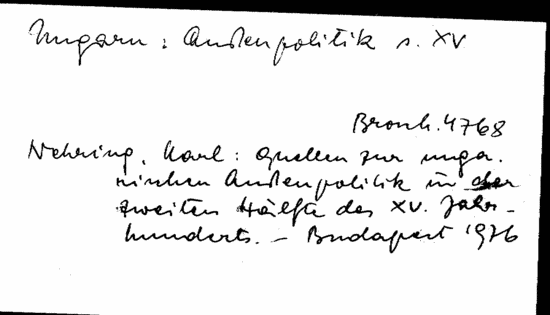 Ungarn: Außenpolitik s. XV
Brosch. 4768
Nehring, Karl: Quellen zur unga-
rischen Außenpolitik in der
zweiten Hälfte des XV. Jahr-
hunderts. – Budapest 1976